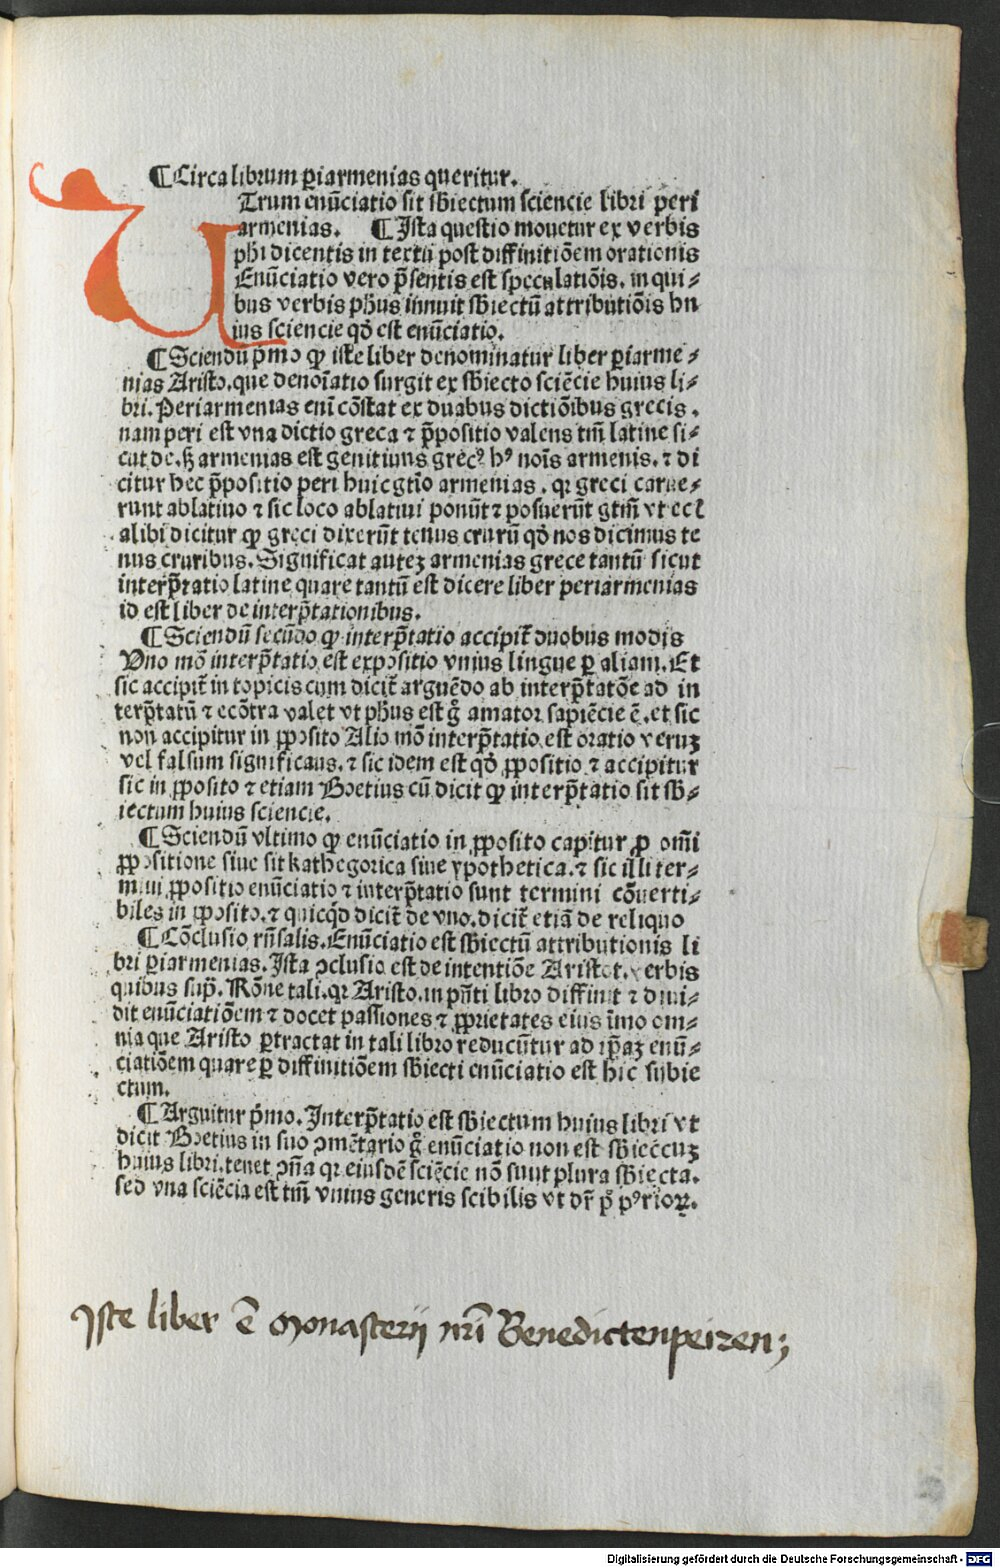 ¶Circa librum ꝑiarmenias queritur.
UTrum enūciatio sit sb̄iectum sciencie libri peri
armenias. ¶Ista questio mouetur ex verbis
ph̄i dicentis in textu post diffinitiōem orationis
Enūciatio vero p̄sentis est speculatiōis. in qui⸗
bus verbis ph̄us innuit sb̄iectū attributiōis hu
ius sciencie qḋ est enūciatio.
¶Sciendū pͥmo ꝙ iste liber denominatur liber ꝑiarme⸗
nias Aristo. que denoīatio surgit ex sb̄iecto sciēcie huius li⸗
bri. Periarmenias enī cōstat ex duabus dictiōibus grecis.
nam peri est vna dictio greca ⁊ p̄positio valens tm̄ latine si⸗
cut de. sꝫ armenias est genitiuus grecꝰ hꝰ noīs armenis. ⁊ di
citur hec p̄positio peri huic gtīo armenias. qꝛ greci carue⸗
runt ablatiuo ⁊ sic loco ablatiui ponūt ⁊ posuerūt gtm̄ vt eciā
alibi dicitur ꝙ greci dixerūt tenus crurū qḋ nos dicimus te
nus cruribus. Significat autez armenias grece tantū sicut
interp̄tatio latine quare tantū est dicere liber periarmenias
id est liber de interp̄tationibus.
¶Sciendū secūdo ꝙ interp̄tatio accipit̄ duobus modis
Uno mō interp̄tatio est expositio vnius lingue ꝑ aliam. Et
sic accipit̄ in topicis cum dicit̄ arguēdo ab interp̄tatōe ad in
terp̄tatū ⁊ ecōtra valet vt ph̄us est gͦ amator sapiēcie ē. et sic
non accipitur in ꝓposito Alio mō interp̄tatio est oratio veruꝫ
vel falsum significans. ⁊ sic idem est qḋ ꝓpositio ⁊ accipitur
sic in ꝓposito ⁊ etiam Boetius cū dicit ꝙ interp̄tatio sit sb̄⸗
iectum huius sciencie.
¶Sciendū vltimo ꝙ enūciatio in ꝓposito capitur ꝓ omī
ꝓpositione siue sit kathegorica siue ypothetica. ⁊ sic illi ter⸗
mini ꝓpositio enūciatio ⁊ interp̄tatio sunt termini cōuerti⸗
biles in ꝓposito. ⁊ quicqͥd dicit̄ de vno. dicit̄ etiā de reliquo
¶Cōclusio rn̄salis. Enūciatio est sb̄iectū attributionis li
bri ꝑiarmenias. Ista ꝯclusio est de intentiōe Aristot. verbis
quibus sup̄. Rōne tali. qꝛ Aristo. in pn̄ti libro diffinit ⁊ diui⸗
dit enūciatiōem ⁊ docet passiones ⁊ ꝓprietates eius īmo om⸗
nia que Aristo ꝑtractat in tali libro reducūtur ad ip̄aꝫ enū⸗
ciatiōem quare ꝑ diffinitiōem sb̄iecti enūciatio est hic subie
ctum.
¶Arguitur pͥmo. Interp̄tatio est sb̄iectum huius libri vt
dicit Boetius in suo ꝯmētario gͦ enūciatio non est sb̄iectuꝫ
huius libri. tenet ꝯn̄a qꝛ eiusdē sciēcie nō sunt plura sb̄iecta.
sed vna sciēcia est tm̄ vnius generis scibilis vt dr̄ pͦ pꝰrioꝝ.
Iste liber ē Monasterij nrī Benedictenpeizen;
Digitalisierung gefördert durch die Deutsche Forschungsgemeinschaft - DFG